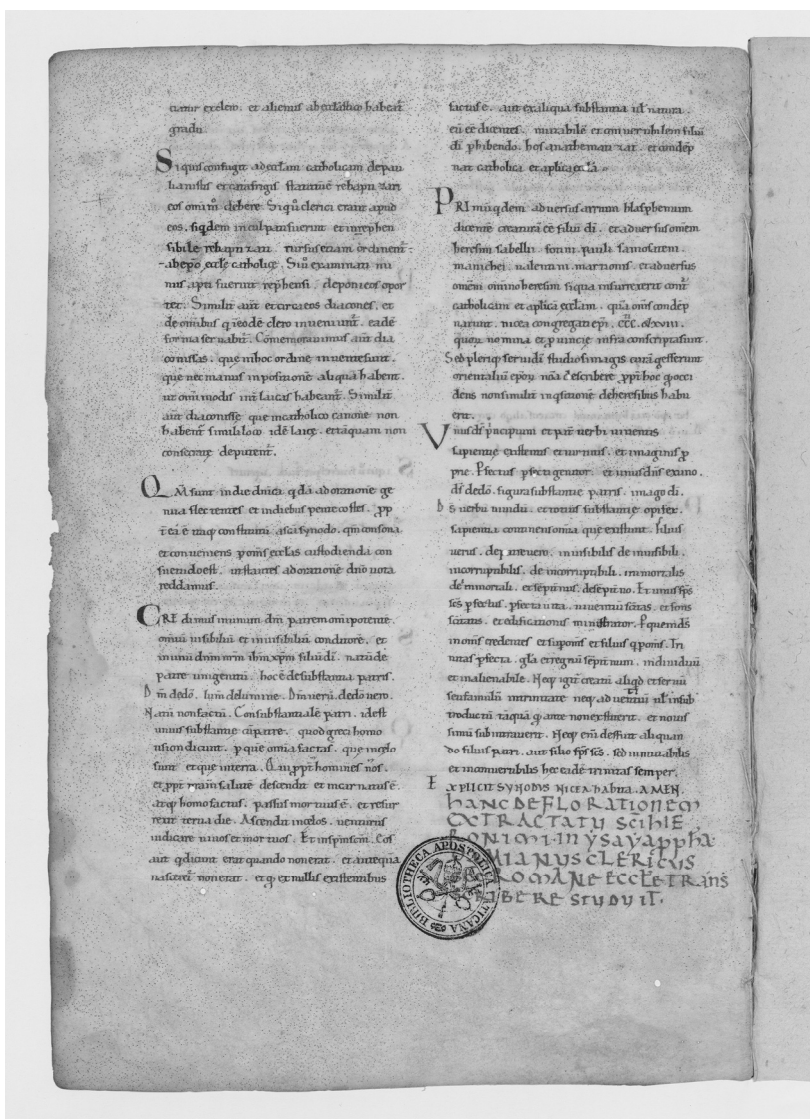 etatur ex clero. et alienus ab eccłastico habeat̄
gradu.
Si quis confugit ad eccłam catholicam de pau
lianistis et catafrigis statutū ē rebaptizari
eos omīm debere. Si qū clerici erant apud
eos. siqdem inculpati fuerint et inrephen
sibiles rebaptizati. rursus etiam ordinent̄
ab ep̄o eccłe catholicę. Si ū examinati mi
nus apti fuerint rep̄hensi. deponi eos opor
tet. Similit̄ aut̄ et circa eos diacones. et
de omīb; q in eodē clero inveniunt̄. eadē
forma servabit̄. Cōmemoravimus aut̄ dia
conissas. quę in hoc ordine inventę sunt.
quę nec manus inpositionē aliquā habent.
ut om̄imodis int̄ laicas habeant̄. Similit̄
aut̄ diaconissę que in catholico canone non
habent̄ simili loco idē laicę. et tāquam non
consecratę deputent̄.
QM sunt in die dn̄ica qdā ad orationē ge
nua flectentes et in diebus pentecostes. ꝓp
t̄ea ē itaq; constitutū a sc̄a synodo. qm̄ consona
et conveniens ꝑ om̄s eccłas custodienda con
suetudo est. ut stantes ad orationē dn̄o vota
reddamus.
CREdimus in unum dm̄ patrem om̄ipotentē.
om̄iū visibiliū et invisibiliū conditorē. et
in unū dn̄m nr̄m ih̄m xp̄m filiū dī. natū de
patre unigenitū. hoc ē de substantia patris.
Dm̄ de dō. lum̄ de lumine. Dm̄ verū de dō vero.
Natū non factū. Consubstantialē patri. id est
unius substantię cū patre. quod greci homo
usion dicunt. ꝑ quē om̄ia facta s̄. quę in cęlo
sunt et que in terra. Qui ꝓpt̄ homines nr̄os.
et ꝓpt̄ nr̄am salutē descendit et incarnatus ē.
atq; homo factus. passus mortuus ē. et resur
rexit tertia die. Ascendit in cęlos. venturus
iudicare vivos et mortuos. Et in sp̄m sc̄m. Eos
aut̄ q dicunt erat quando non erat. et antequa
nasceret̄ non erat. et q; ex nullis existentibus
factus ē. aut ex aliqua substantia ul̄ natura.
eū ēē dicentes. mutabilē et convertibilem filiū
dī ꝑhibendo. hos anathematizat. et condēp
nat catholica et aplica eccła.
PRImū qdem adversus arrium blasphemum
dicentē creaturā ēē filiū dī. et adversus omēm
heresim sabelli. fotini. pauli samosateni.
manichei. valentini. marcionis. et adversus
omēm omīno heresim siqua insurrexerit cont̄
catholicam et aplicā eccłam. quā om̄s condēp
narunt. nicea congregati ep̄i. ccc. xviii.
quoꝝ nomina et ꝓvincię infra conscripta sunt.
Sed pleriq; servi dī studiosi magis curā gesserunt
orientaliū ep̄oꝝ noīa c̄scribere. ꝓpt̄ hoc q; occi
dens non similit̄ inq̄sitionē de heresibus habu
erit.
Vnus ds̄ principium et pat̄ verbi viventis
sapientię existentis et virtutis. et imaginis ꝓ
prię. ꝑfectus ꝑfecti genitor. et unus dn̄s ex uno.
ds̄ de dō. figura substantię patris. imago dī.
Ds̄ verbū mundi. et totius substantię opifex.
sapientia continens om̄ia quę existunt. filius
verus. de patre vero. invisibilis de invisibili.
incorruptibilis. de incorruptibili. immortalis
de immortali. et sempit̄nus. de sempit̄no. Et unus sp̄s
sc̄s ꝑfectus. ꝑfecta vita. viventiū sc̄itas. et fons
sc̄itatis. et ędificationis ministrator. ꝑ quem ds̄
in om̄s credentes et sup om̄s et filius q ꝑ om̄s. Tri
nitas ꝑfecta. gła et regnū sempit̄num. individuū
et inalienabile. Neq; igit̄ creatū aliqd et serviū
seu famulū in trinitate neq; adventitiū ul̄ insub
troductū tāquā q; ante non extiterit. et novus
simū subintraverit. Neq; eni defuit aliquan
do filius patri. aut filio sp̄s sc̄s. sed inmutabilis
et inconvertibilis hęc eadē trinitas semper.
EXPLICIT SYNODVS NICEA habita. AMEN.
hANC DEFLORATIONEM
EX TRACTATU SC̄I HIE
RONIMI. IN YSAYA PPhA.
MIANUS CLERICUS
ROMANE ECCLE TRANS
BERE STUDUIT.
BIBLIOTHECA APOSTOLICA VATICANA